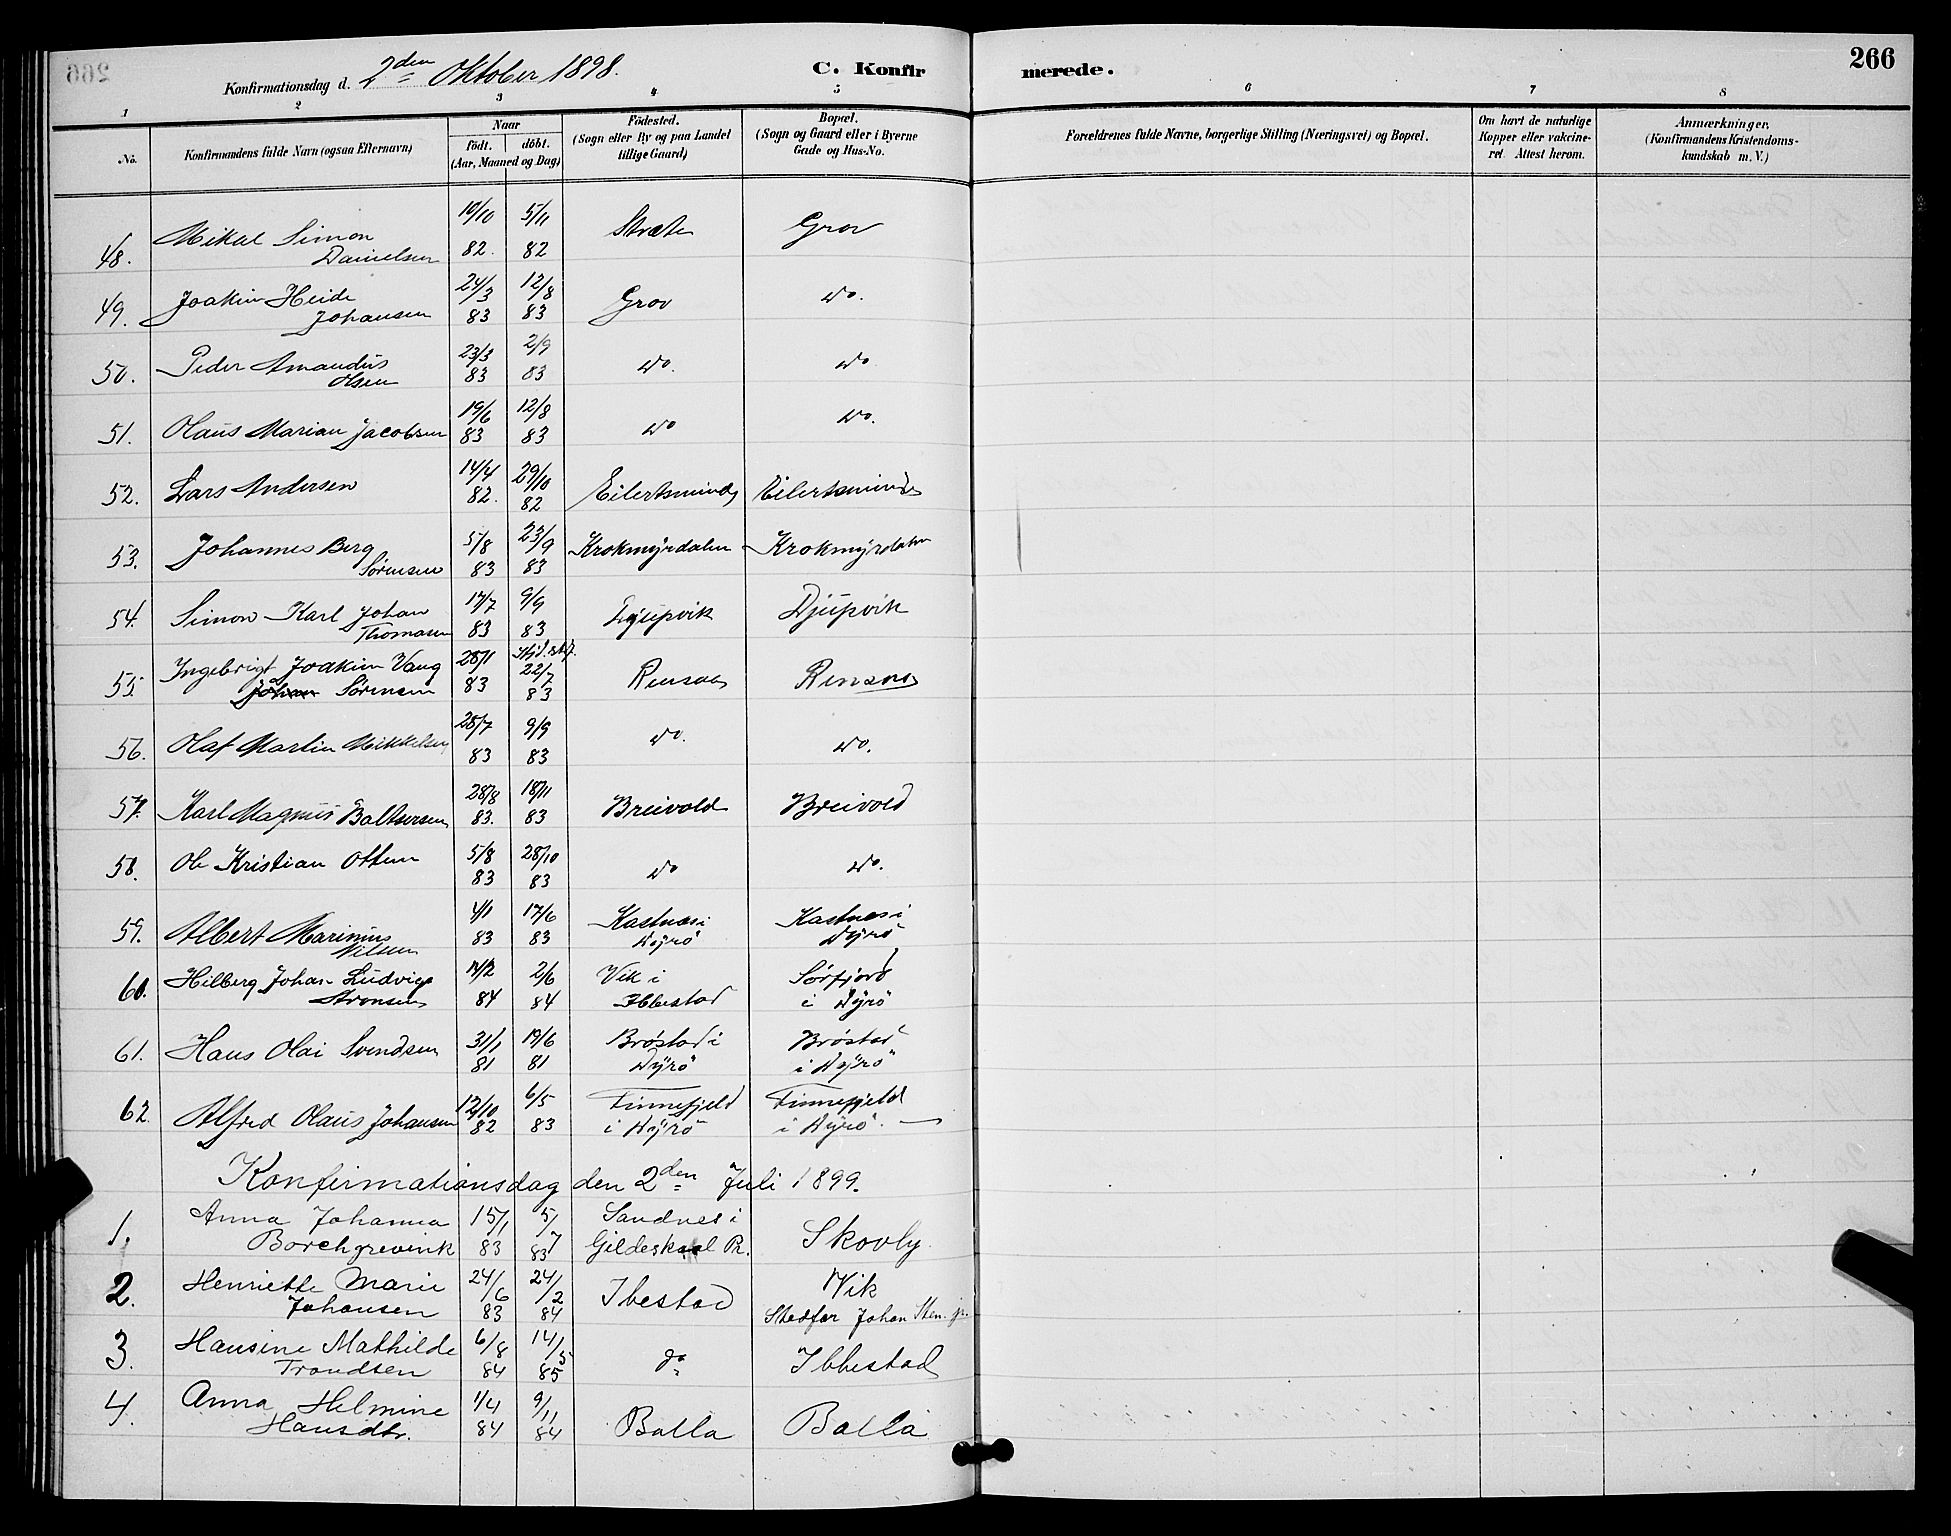 266
Konfirmationsdag d. 2den Oktober 1898.
C. Konfirmerede.
1 2 3 4 5 6 7 8
No.
Konfirmandens fulde Navn (ogsaa Efternavn)
Naar
födt. döbt.
(Aar, Maaned og Dag)
Födested.
(Sogn eller By og paa Landet
tillige Gaard)
Bopæl.
(Sogn og Gaard eller i Byerne
Gade og Hus-No.
Forældrenes fulde Navne, borgerlige Stilling (Næringsvei) og Bopæl.
Om havt de naturlige
Kopper eller vakcine-
ret. Attest herom.
Anmærkninger,
(Konfirmandens Kristendoms-
kundskab m. V.)
48. Mikal Simon Danielsen 19/10 82. 5/11 82 Stræte Grov
49. Joakim Heide Johansen 24/3 83 12/8 83 Grov do.
50. Peder Amandus Olsen 23/3 83 2/9 83 do. do
51. Olaus Marian Jacobsen 19/6 83 12/8 83 do do.
52. Lars Andersen 14/4 82. 29/10 82 Eilertsminde Eilertsminde
53. Johannes Berg Sörensen 5/8 83 23/9 83 Krokmyrdalen Krokmyrdalen
54. Simon Karl Johan Thomasen 17/7 83 9/9 83 Djupvik Djupvik
55 Ingebrigt Joakim Vang Johan Sörensen 28/1 83 22/7 83 Rensaa Rensaa
56. Olaf Martin Mikkelsen 28/7 83 9/9 83 do. do.
57. Karl Magnus Baltsersen 28/8 83. 18/11 83 Breivold Breivold
58. Ole Kristian Ottem 5/8 83 28/10 83 do do.
59. Albert Marinius Nilsen 4/1 83 17/6 83 Kastnes i Dyrö Kastnes i Dyrö
60. Hilberg Johan Ludvig Aronsen 14/2 84 2/6 84 Vik i Ibbestad Sörfjord i Dyrö
61. Hans Olai Svendsen 31/1 81 19/6 81 Bröstad i Dyrö Bröstad i Dyrö
62 Alfred Olaus Johansen 12/10 82 6/5 83 Finnefjeld i Dyrö Finnefjeld i Dyrö.
Konfirmationsdag den 2den Juli 1899.
1. Anna Johanna Borchgrevink 15/1 83 5/7 83 Sandnes i Gildeskaal Pr. Skovly
2. Henriette Marie Johansen 24/6 83 24/2 84 Ibestad Vik Stedfar Johan Sten. jr.
3. Hansine Mathilde Trondsen 6/8 84 14/5 85 do Ibbestad
4. Anna Helmine Hansdtr. 1/4 84 9/11 84 Balla Balla